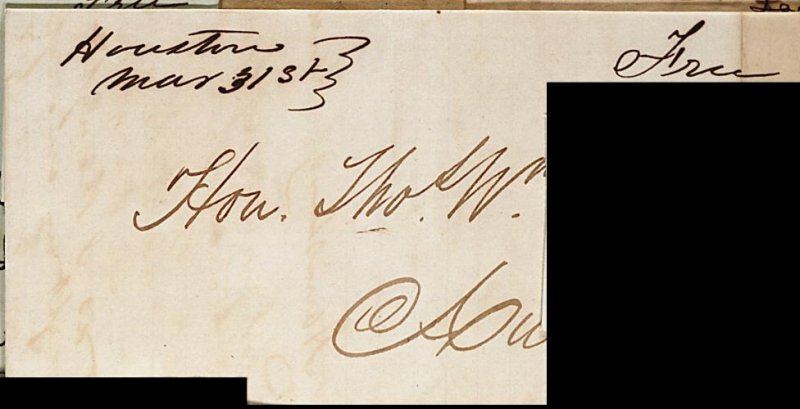 Houston
Mar 31st
Free
Hon. Thos. Wm
Au